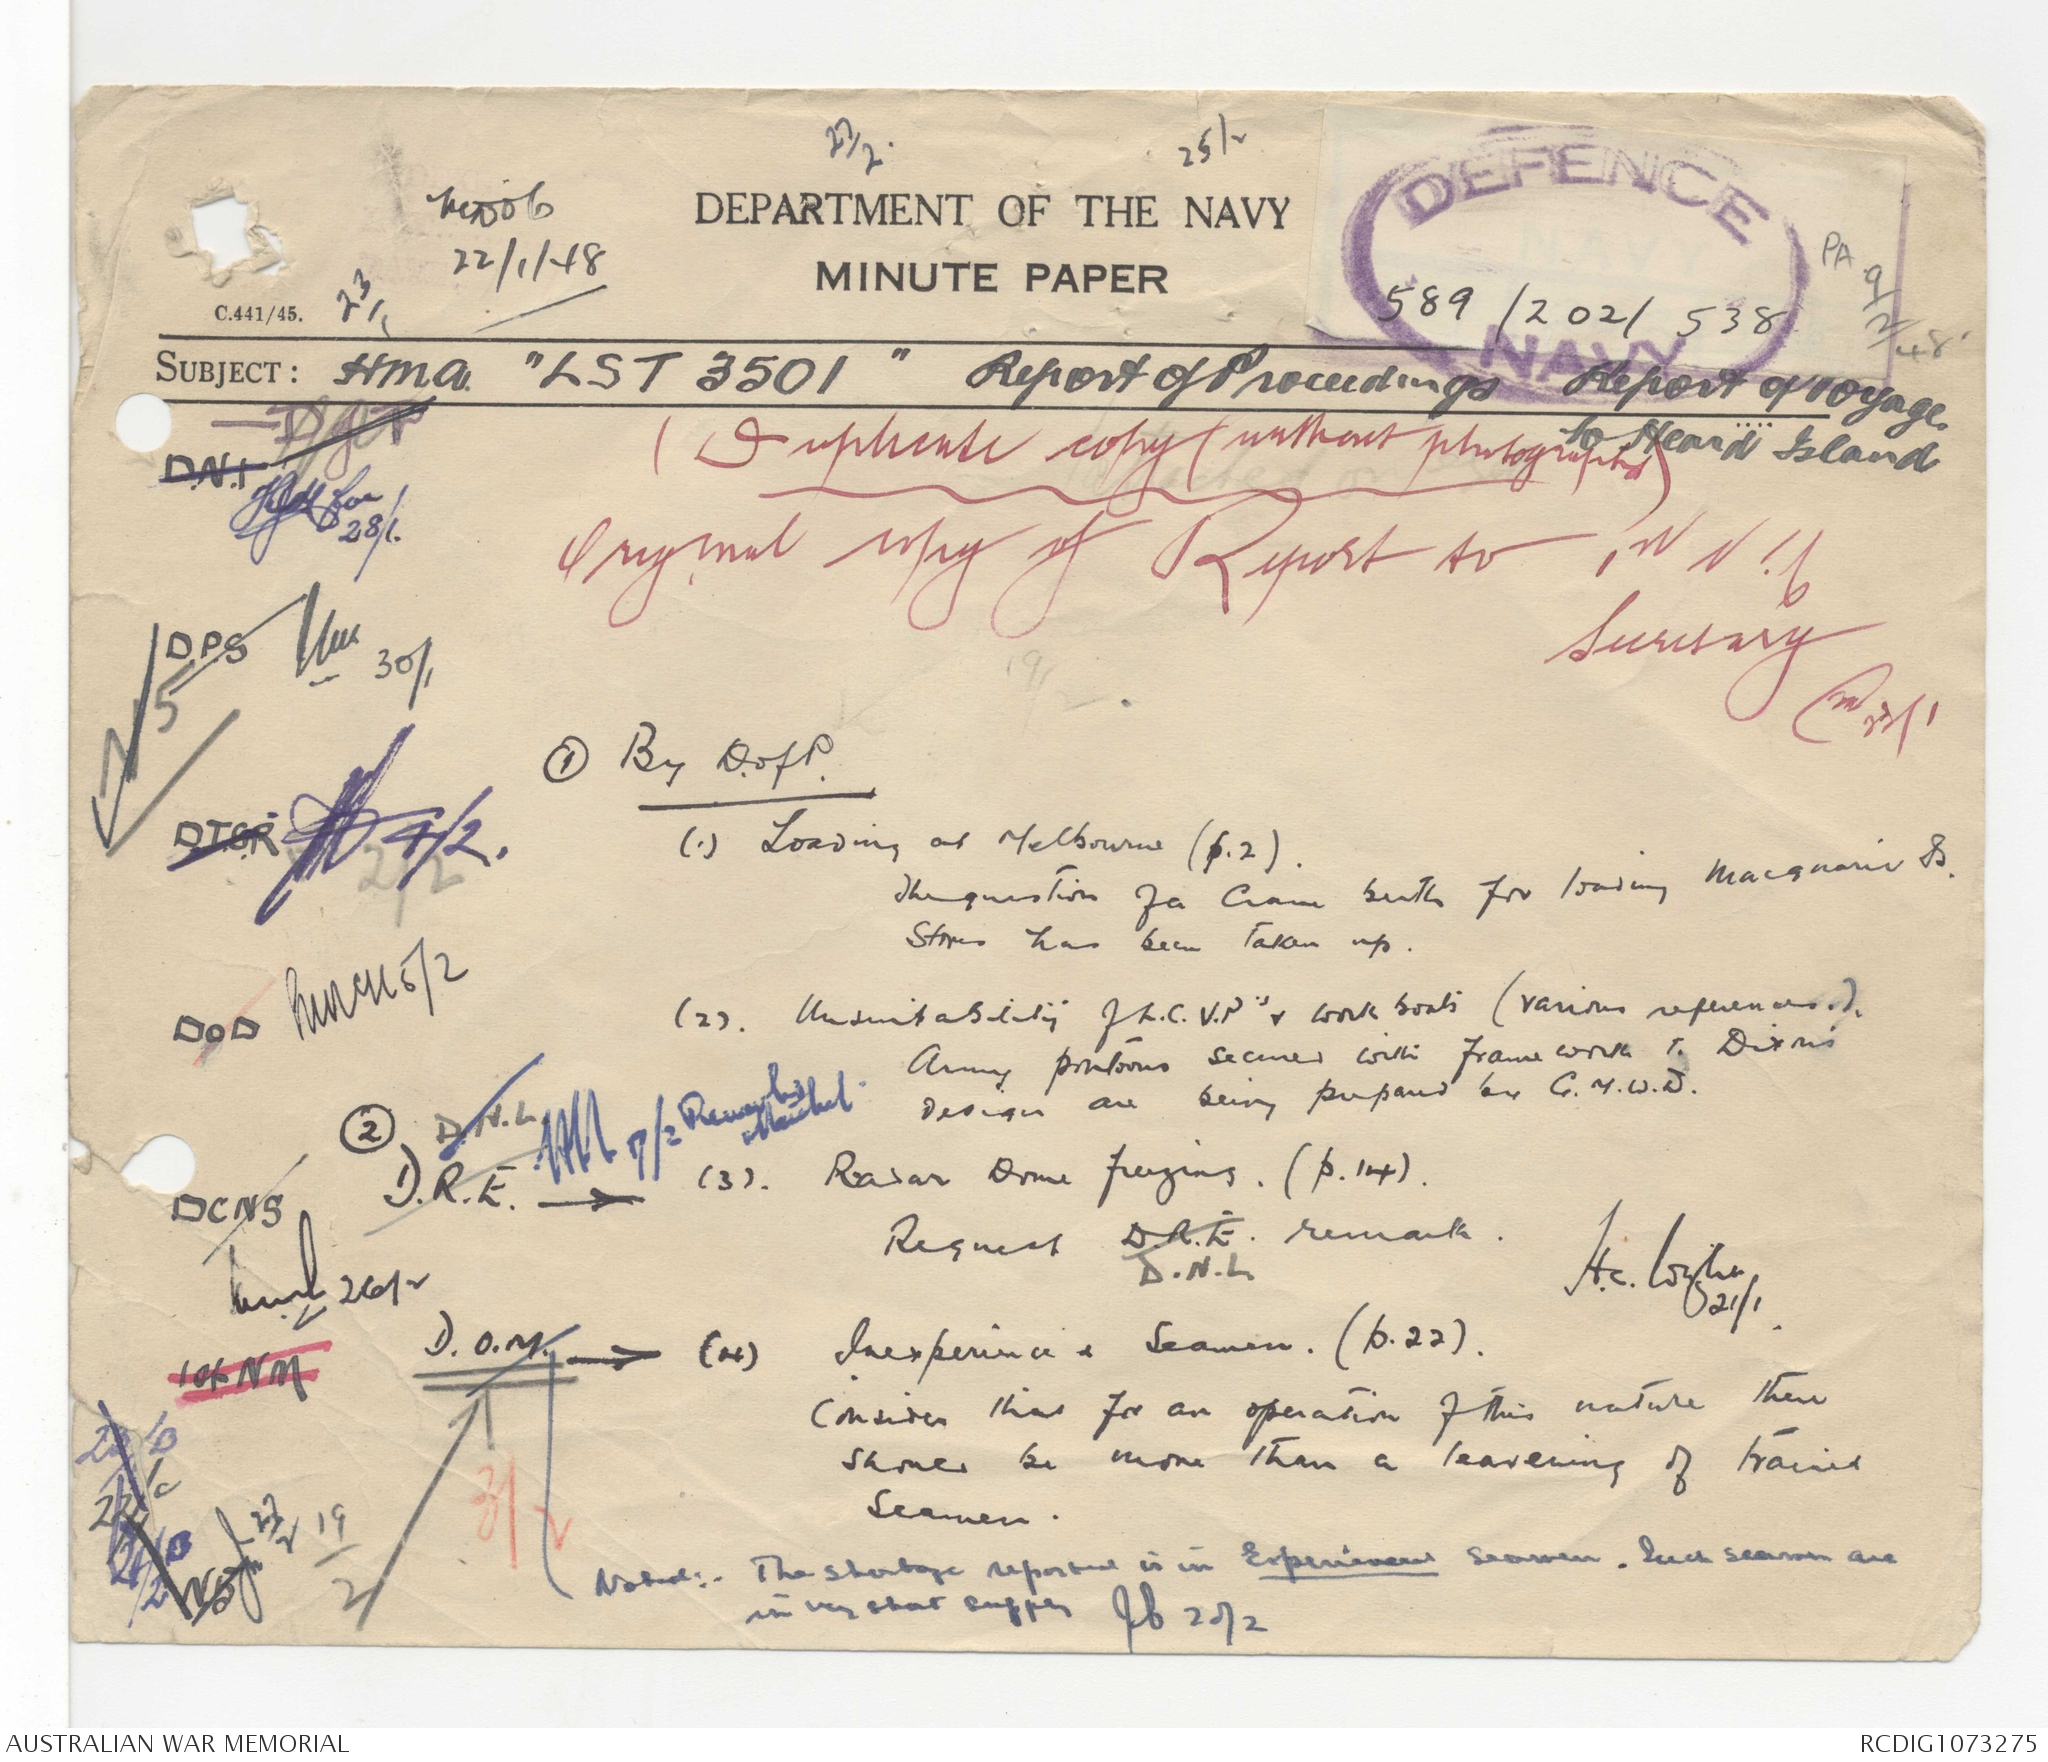 27/2.
25/2
22/1/48
DEPARTMENT OF THE NAVY
MINUTE PAPER
DEFENCE
NAVY
589/202/538
PA 9/2/48
C.441/45.
23/1
SUBJECT: HMA. "LST 3501" Report of Proceedings Report of Voyage
to Heard Island
D.N.I
28/1.
(Duplicate copy (without photographs)
Original copy of Report to 1st N.M.
Secretary
23/1
DPS
30/1
5
① By D.of P.
DTSR
4/2.
2/2
(1) Loading at Melbourne (p.2).
The question of a Crane berth for loading Macquarie Is.
Stores has been taken up.
DOD
5/2
(2). Unsuitability of L.C.V.P's & work boats (various references).
Army pontoons secured with framework to Dixon's
design are being prepared by G.M.W.D.
②
D.N.L
D.R.E. →
17/2
(3). Radar Dome freezing. (p.14).
Request D.R.E. remark.
D.N.L
21/1
DCNS
26/2
1st NM
D.O.M. →
(4) Inexperienced Seamen. (p.22).
Consider that for an operation of this nature there
should be more than a leavening of trained
Seamen.
3/2
27/2
19/2
Noted:- The shortage reported is in Experienced seamen. Such seamen are
in very short supply 20/2
AUSTRALIAN WAR MEMORIAL
RCDIG1073275